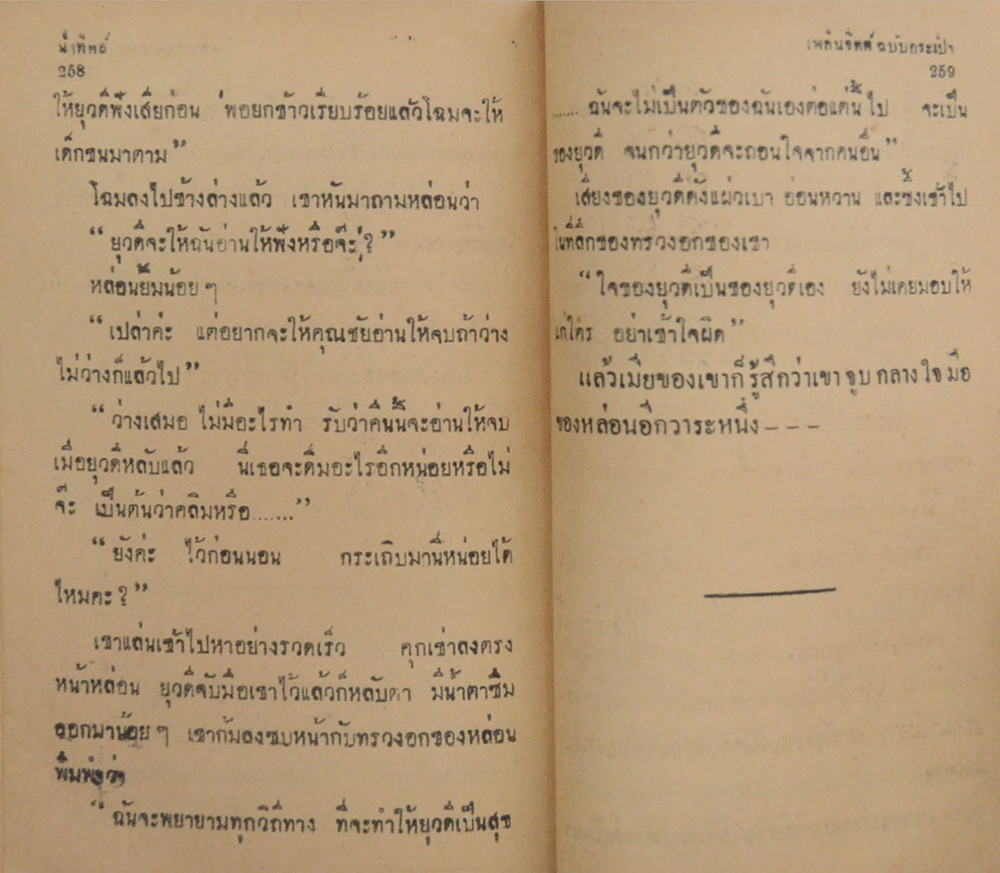 น้ำทิพย์
258
ให้ยุวดีฟังเสียก่อน พอยกข้าวเรียบร้อยแล้วโฉมจะให้
เด็กขนมาตาม”
โฉมลงไปข้างล่างแล้ว เขาหันมาถามหล่อนว่า
“ ยุวดีจะให้ฉันอ่านให้ฟังหรือจ๊ะ ? ”
หล่อนยิ้มน้อย ๆ
“ เปล่าค่ะ แต่อยากจะให้คุณชัยอ่านให้จบถ้าว่าง
ไม่ว่างก็แล้วไป ”
“ ว่างเสมอ ไม่มีอะไรทำ รับว่าคืนนี้จะอ่านให้จบ
เมื่อยุวดีหลับแล้ว นี่เธอจะดื่มอะไรอีกหน่อยหรือไม่
จ๊ะ เป็นต้นว่าคลิมหรือ.......”
“ ยังค่ะ ไว้ก่อนนอน กระเถิบมานี่หน่อยได้
ไหมคะ ? ”
เขาแล่นเข้าไปหาอย่างรวดเร็ว คุกเข่าลงตรง
หน้าหล่อน ยุวดีจับมือเขาไว้แล้วก็หลับตา มีน้ำตาซึม
ออกมาน้อย ๆ เขาก้มลงซบหน้ากับทรวงอกของหล่อน
พึมพำว่า
“ ฉันจะพยายามทุกวิถีทาง ที่จะทำให้ยุวดีเป็นสุข
เพลินจิตต์ ฉบับกระเป๋า
259
...... ฉันจะไม่เป็นตัวของฉันเองต่อแต่นี้ไป จะเป็น
ของยุวดี จนกว่ายุวดีจะถอนใจจากคนอื่น ”
เสียงของยุวดีดังแผ่วเบา อ่อนหวาน และซึ้งเข้าไป
ในที่ลึกของทรวงอกของเขา
“ ใจของยุวดีเป็นของยุวดีเอง ยังไม่เคยมอบให้
แก่ใคร อย่าเข้าใจผิด ”
แล้วเมียของเขาก็รู้สึกว่าเขา จูบ กลาง ใจ มือ
ของหล่อนอีกวาระหนึ่ง – – –